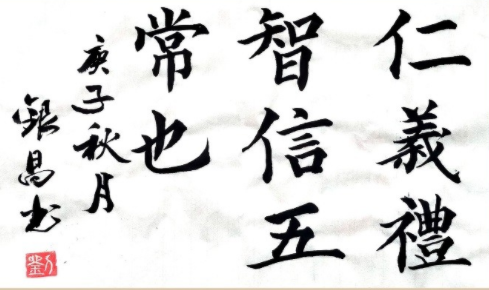 仁義禮
智信五
常也
庚子秋月
銀昌书
劉